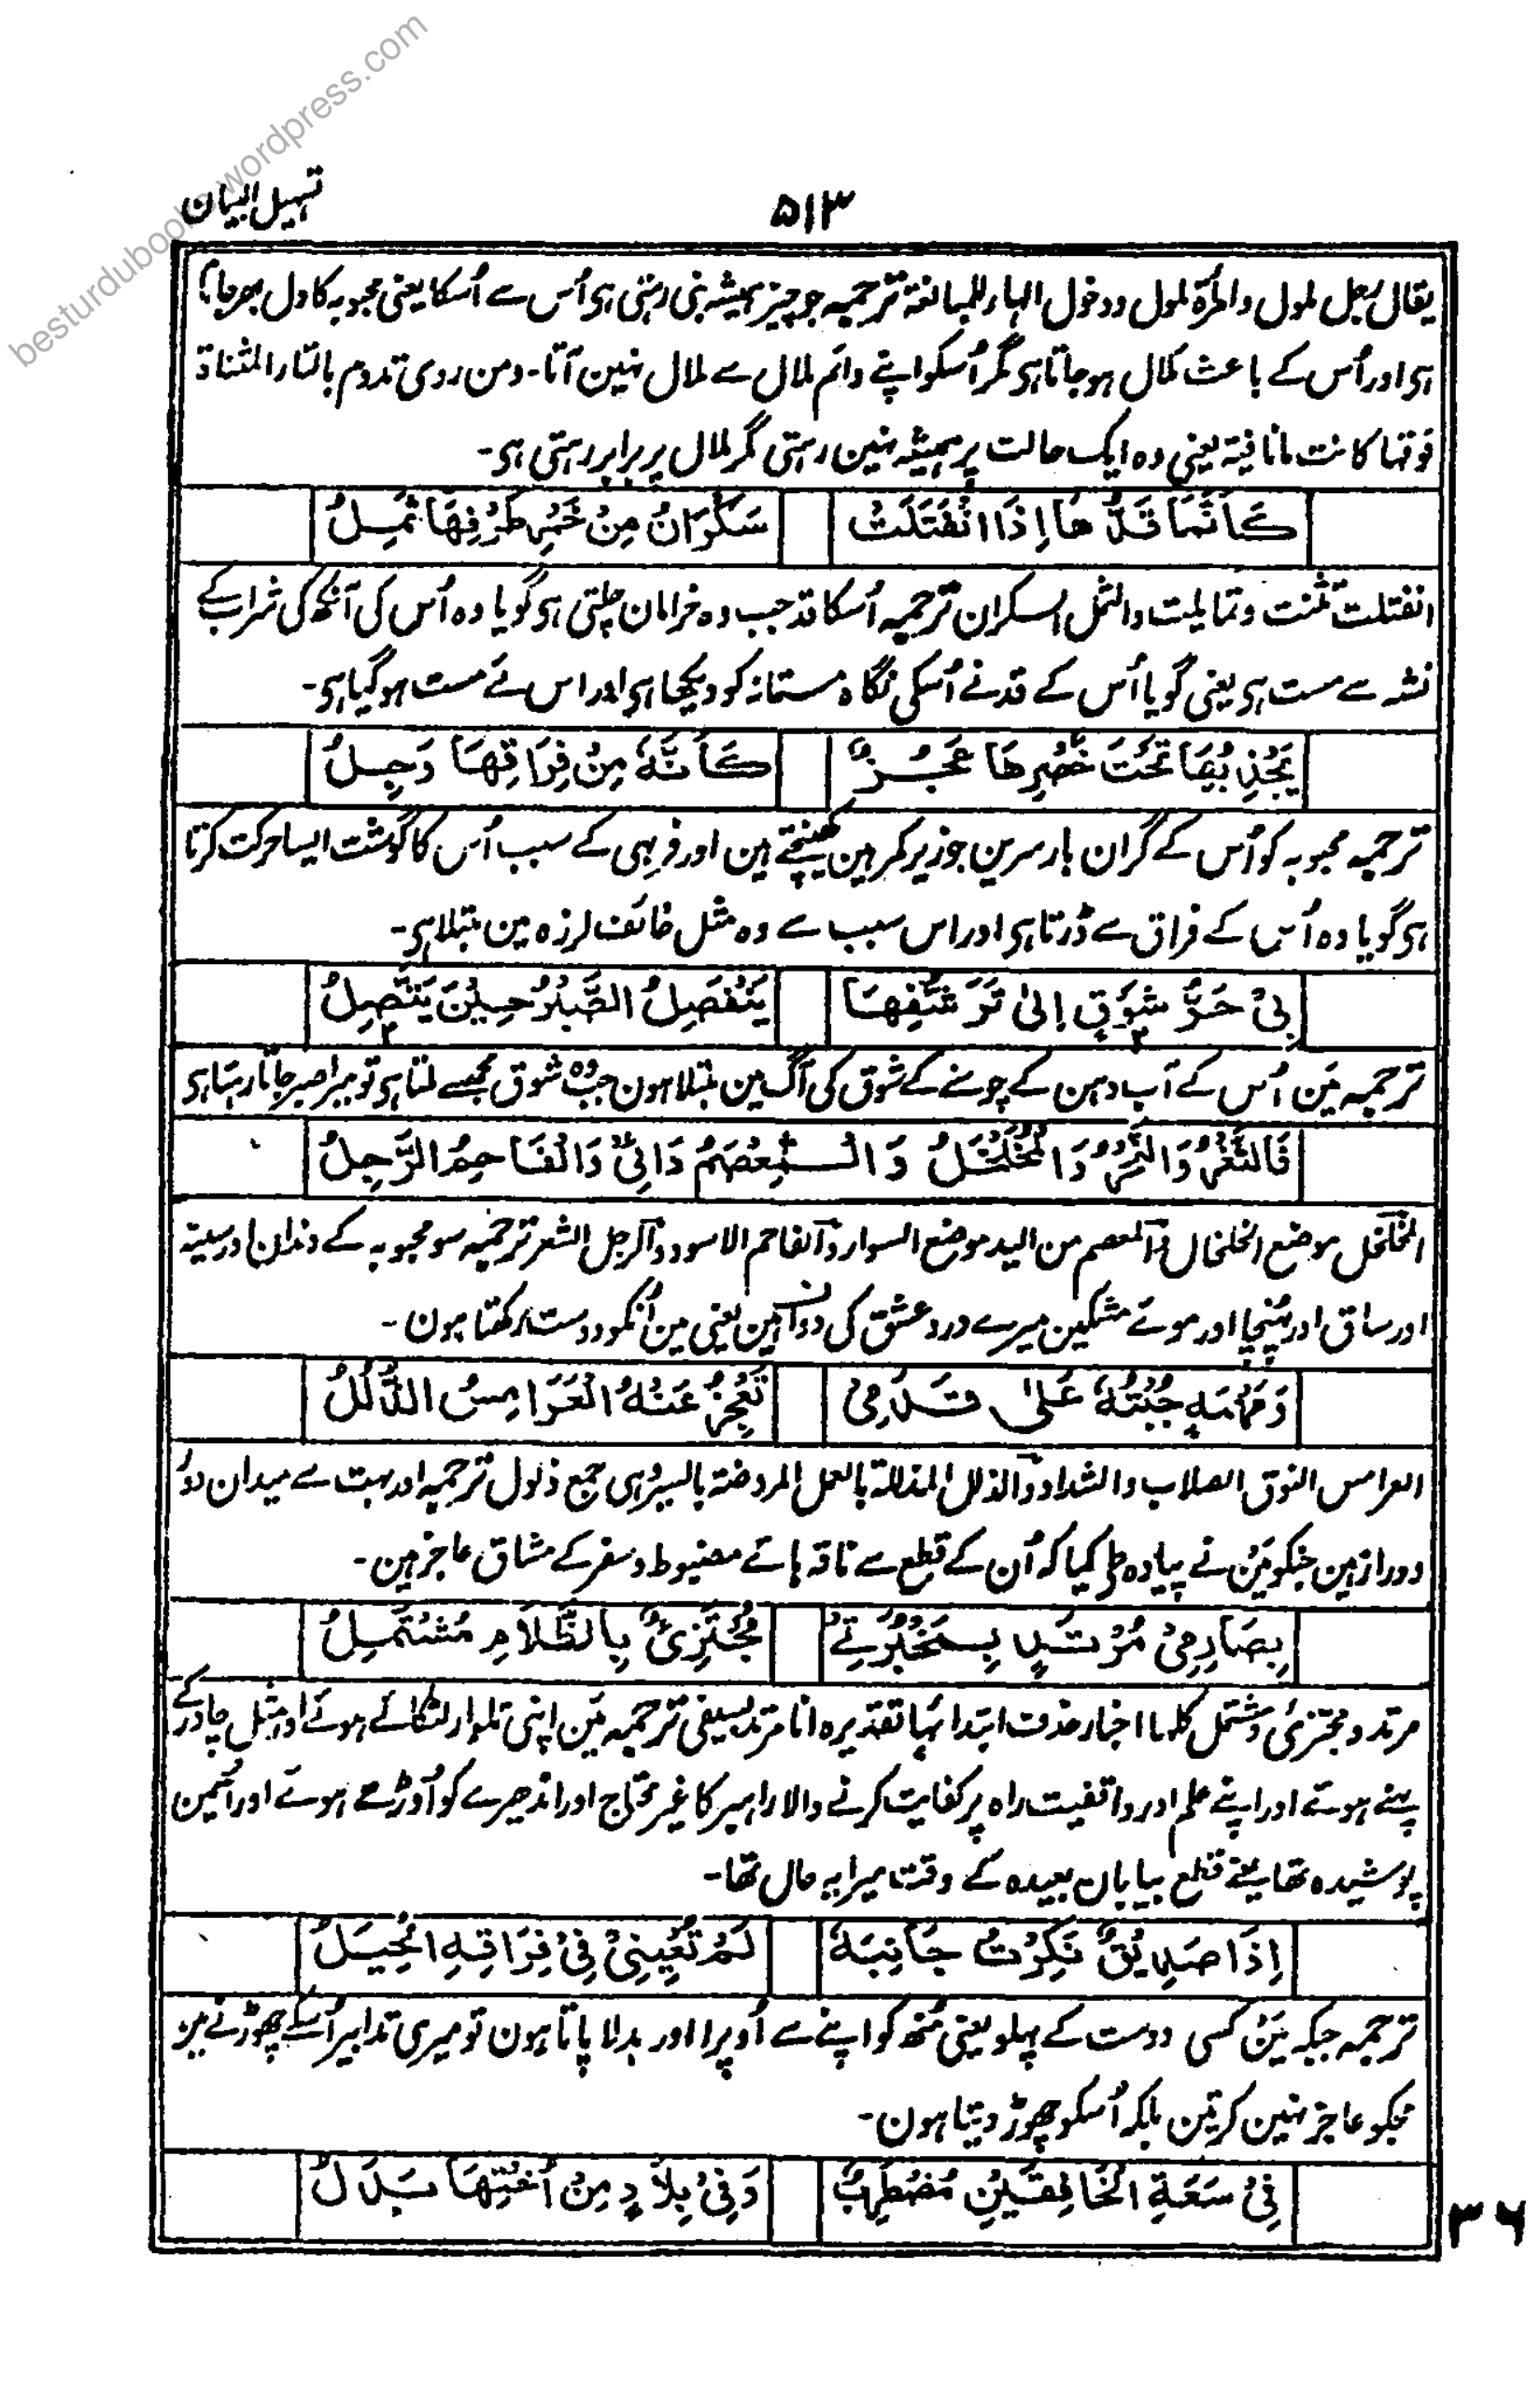 besturdubooks.wordpress.com
تسہیل البیان
۵۱۳
یقال رجل لمول وامرأۃ لمول ودخول الہاء للمبالغۃ ترجمہ جو چیز ہمیشہ بنی رہتی ہی اُس سے اُسکا یعنی محبوبہ کا دل بھرجاتا
ہی اور اُس کے باعث ملال ہوجاتا ہی مگر اُسکو اپنے دائم ملال سے ملال نہین آتا۔ ومن روی تدوم بالتاء المثناۃ
فوقہا کانت ما نافیۃ یعنی وہ ایک حالت پر ہمیشہ نہین رہتی مگر ملال پر برابر رہتی ہی۔
كَاَنَّمَا قَدُّهَا اِذَا انْفَتَلَتْ سَكْرَانُ مِنْ خَمْرِ طَرْفِهَا ثَمِلُ
انفتلت تثنت وتمایلت والثمل السکران ترجمہ اُسکا قد جب وہ خرامان چلتی ہی گویا وہ اُس کی آنکھ کی شراب کے
نشہ سے مست ہی یعنی گویا اُس کے قد نے اُسکی نگاہ مستانہ کو دیکھا ہی اور اس لئے مست ہوگیا ہی۔
يَجْذِبُهَا تَحْتَ خَصْرِهَا عَجُزٌ كَاَنَّهٗ مِنْ فِرَاقِهَا وَجِلُ
ترجمہ محبوبہ کو اُس کے گران بار سرین جو زیر کمر ہین کھینچتے ہین اور فربہی کے سبب اُس کا گوشت ایسا حرکت کرتا
ہی گویا وہ اُس کے فراق سے ڈرتا ہی اور اس سبب سے وہ مثل خائف لرزہ مین مبتلا ہی۔
بِیْ حَرُّ شَوْقٍ اِلٰی تَرَشُّفِهَا يَنْفَصِلُ الصَّبْرُ حِيْنَ يَتَّصِلُ
ترجمہ مَین اُس کے آب دہن کے چوسنے کے شوق کی آگ مین مبتلا ہون جب وہ شوق مجھسے ملتا ہی تو میرا صبر جاتا رہتا ہی
فَالثَّغْرُ وَالنَّحْرُ وَالْمُخَلْخَلُ وَالْمِعْصَمُ دَائِیْ وَالْفَاحِمُ الرَّجِلُ
المخلخل موضع الخلخال والمعصم من الید موضع السوار والفاحم الاسود والرجل الشعر ترجمہ سو محبوبہ کے دندان اور سینہ
اور ساق اور پہنچا اور موئے مشکین میرے درد عشق کی دوا ہین یعنی مین اُنکو دوست رکھتا ہون۔
وَمَهْمَهٍ جُبْتُهٗ عَلٰی قَدَمِیْ تَعْجِزُ عَنْهُ الْعَرَامِسُ الذُّلُلُ
العرامس النوق الصلاب والشداد والذلل المذللۃ بالعمل المروضۃ بالسیر وہی جمع ذلول ترجمہ اور بہت سے میدان دور
دوراز ہین جنکو مَین نے پیادہ طی کیا کہ اُن کے قطع سے ناقہ ہائے مضبوط و سفر کے مشاق عاجز ہین۔
بِصَارِمِیْ مُرْتَدٍ بِمَخْبُرَتِیْ مُجْتَزِئٌ بِالظَّلَامِ مُشْتَمِلُ
مرتد و مجتزئ و مشتمل کلہا اخبار حذفت ابتداہا تقدیرہ انا مرتد بسیفی ترجمہ مَین اپنی تلوار لٹکائے ہوئے اور مثل چادر کے
پہنے ہوئے اور اپنے علم اور واقفیت راہ پر کفایت کرنے والا راہبر کا غیر محتاج اور اندھیرے کو اُوڑھے ہوئے اور اُسمین
پوشیدہ تھا یعنے قطع بیابان بعیدہ کے وقت میرا یہ حال تھا۔
اِذَا صَدِيْقٌ نَكِرْتُ جَانِبَهٗ لَمْ تُعْيِنِیْ فِیْ فِرَاقِهِ الْحِيَلُ
ترجمہ جبکہ مَین کسی دوست کے پہلو یعنی مُنھ کو اپنے سے اُوپرا اور بدلا پاتا ہون تو میری تدابیر اُسکے چھوڑنے مین
مجکو عاجز نہین کرتین بلکہ اُسکو چھوڑ دیتا ہون۔
فِیْ سَعَةِ الْخَافِقَيْنِ مُضْطَرَبٌ وَفِیْ بِلَادٍ مِنْ اُخْتِهَا بَدَلُ
۳۶